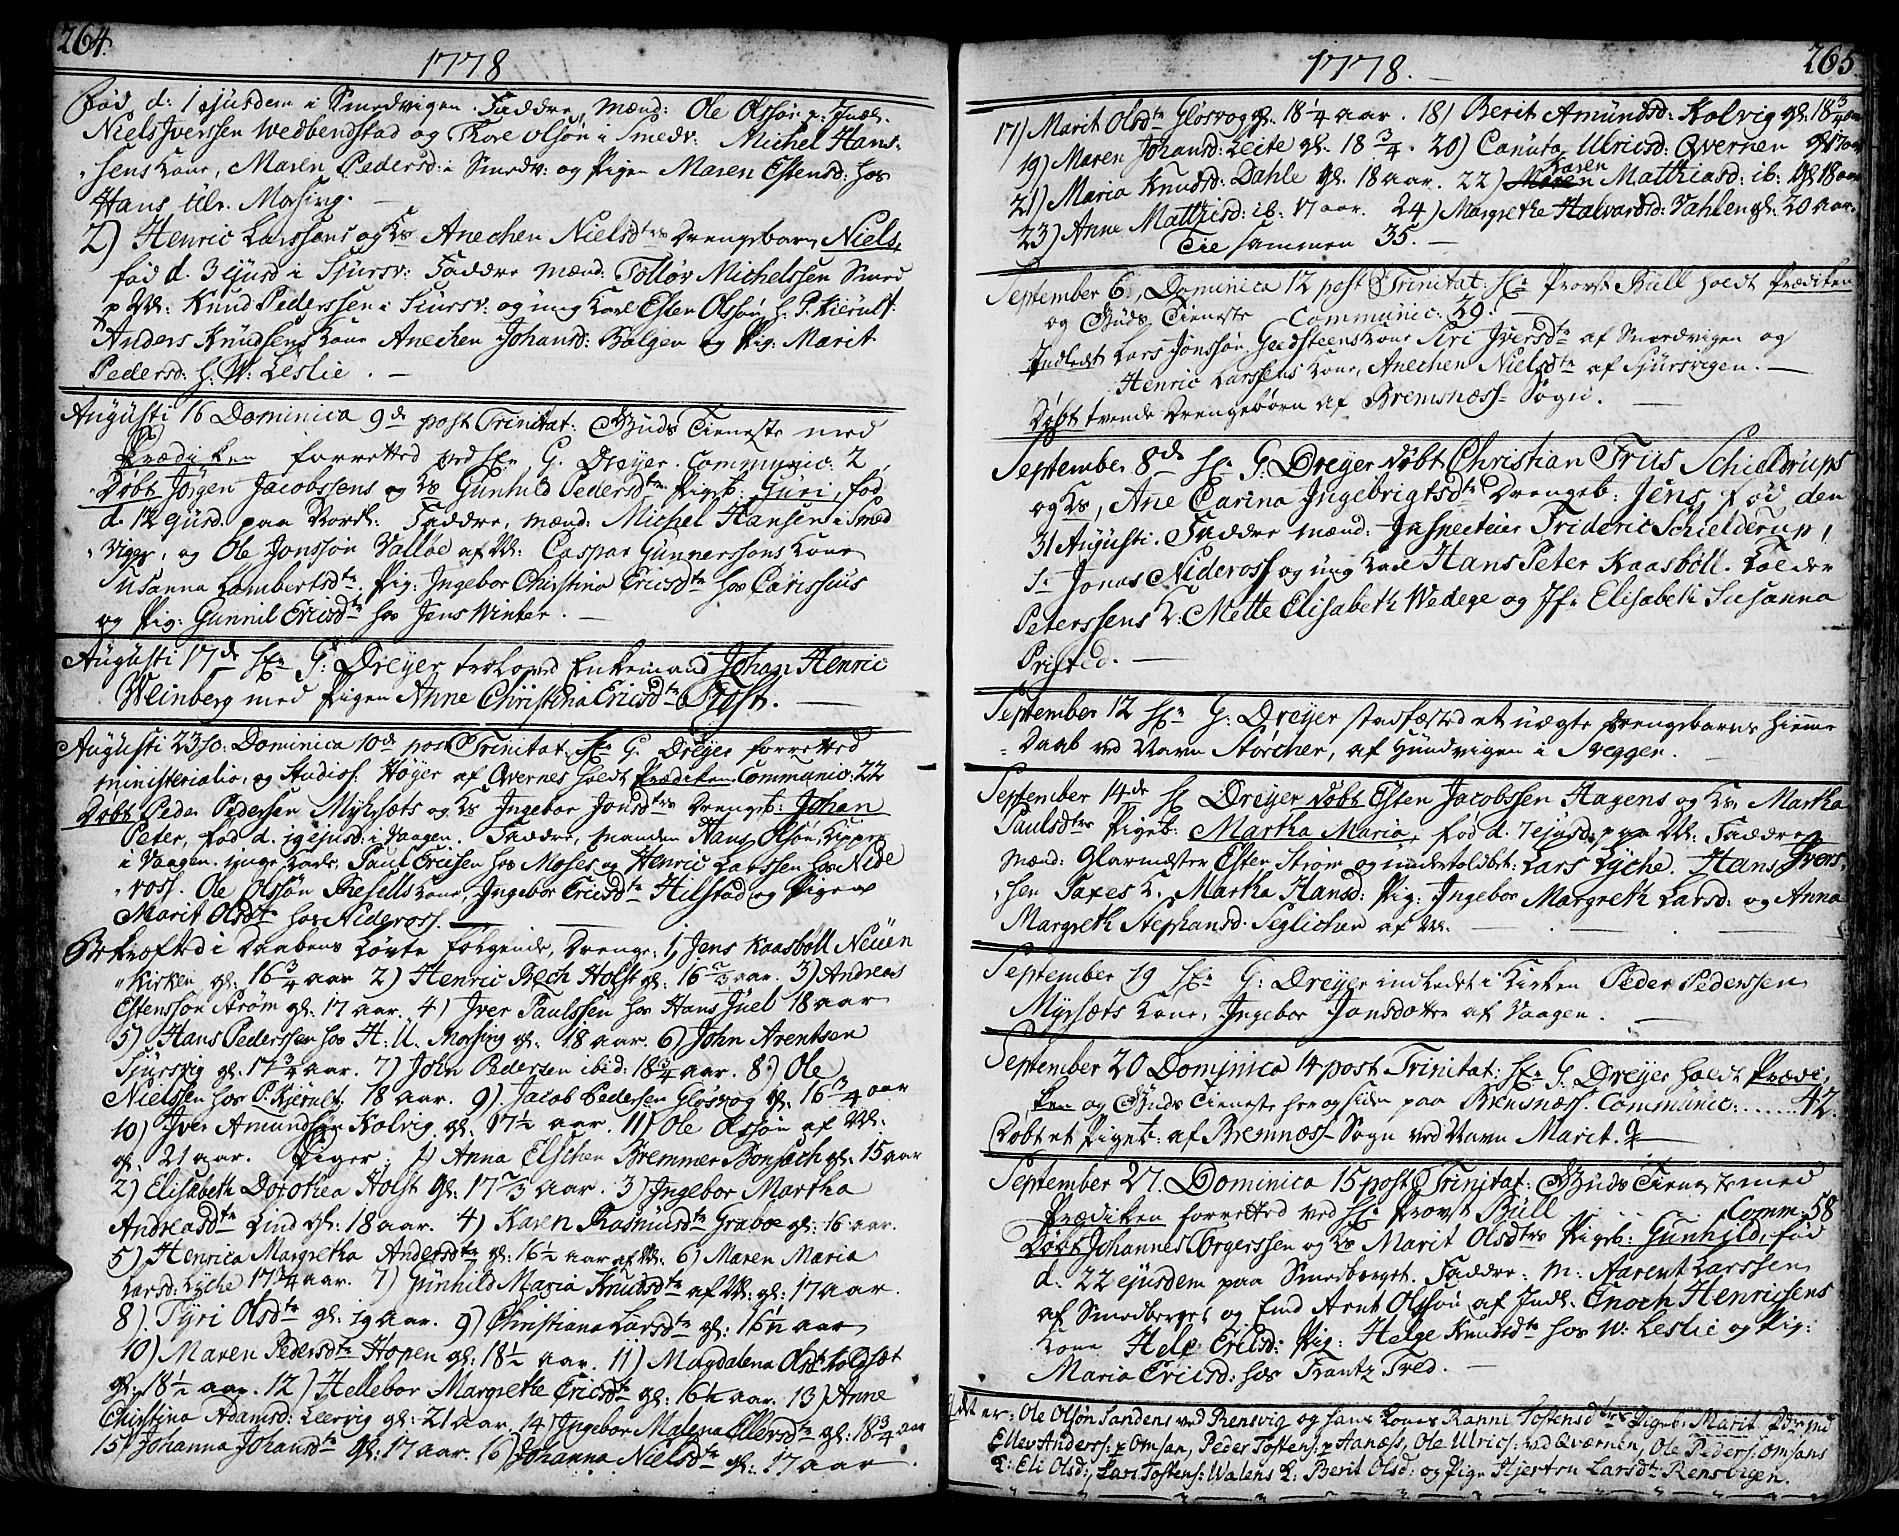 264.
1778
fød d: 1 ejusdem i Smedvigen. Faddre, Mænd: Ole Olssøn p: Indl.
Niels Jverssen Wedbendstad og Tore Olsøn i Smedv: Michel Hans-
sens Kone, Maren Pedersd: i Smedv: og Pigen Maren Estensd: hos
Hans Ulr. Mossing. —
2) Henric Larssøns og Ks Anechen Nielsdtrs Drengebarn Niels,
fød d. 3 ejusd i Sjursv: Faddre Mænd: Tolløv Michelssen Smed
p W: Knud Pederssen i Siursv: og ung Karl Esten Olssøn h. P. Kierulf:
Anders Knudsens Kone Anechen Johansd: Bolgen og Pig: Marit
Pedersd: h. W: Leslie. —
Augusti 16 Dominica 9de post Trinitat: Guds Tieneste med
Prædiken forretted ved Hr: G. Dreyer. Communic: 2
Døbt Jørgen Jacobssens og Ks Gunhild Pedersdtrs Pigeb: Guri, fød
d. 12 ejusd. paa Nordl: Faddre, Mænd: Michel Hansen i Smed
Vigen, og Ole Jonssøn Valløe af W: Caspar Gunnerssøns Kone
Susanna Lambertsdtr. Pig: Ingebor Christina Ericsdtr hos Carissius
og Pig: Gunnil Ericsdtr hos Jens Winter. —
Augusti 17de Hr: G: Dreyer troloved Enkemand Johan Henric
Weinberg med Pigen Anne Christina Ericsdtr Frost. —
Augusti 23 so: Dominica 10de post Trinitat: Hr: G. Dreyer forretted
ministerialia, og Studios: Høyer af Qvernes holdt Prædiken. Communic: 22
Døbt Peder Pedersen Myhrsæts og Ks Ingebor Jonsdtrs Drengeb: Johan
Peter, fød d. 19 ejusd: i Vaagen. Faddre, Manden Hans Olsøn
i Vaagen. unge Karle: Paul Ericsen hos Moses og Henric Larssen hos Nide
ross. Ole Olssøn Bresells Kone, Ingebor Ericsdtr Hilstad og Pigen
Marit Olsdtr hos Nideross. —
Bekræfted i Daabens Løvte følgende, Drenge: 1, Jens Kaasbøll Neuen
Kirken gl: 16 3/4 aar 2) Henric Bech Holst gl: 16 2/3 aar. 3) Andreas
Estenssøn Strøm gl. 17 aar. 4) Jver Paulssen hos Hans Juel 18 aar
5) Hans Pederssen hos H. U. Mossing gl. 18 aar. 6) John Arentsen
Sjursvig gl: 17 3/4 aar. 7) John Pedersen ibid: 18 3/4 aar. 8) Ole
Nielssen hos P. Kjerulf, 18 aar. 9) Jacob Pedersen Glosvog gl. 16 3/4 aar
10) Jver Amundsøn Kolvig gl. 17 1/2 aar. 11) Ole Olssøn af W:
gl. 21 aar. Piger: 1) Anna Elschen Bremmer Bonsach gl: 15 aar
2) Elisabeth Dorothea Holst gl. 17 2/3 aar. 3) Ingebor Martha
Andreasdtr Lind gl: 18 aar. 4) Karen Rasmusdtr Graboe gl: 16 aar.
5) Henrica Margretha Andersdtr gl: 16 1/2 aar af W: 6) Maren Maria
Larsd: Lyche 17 3/4 aar. 7) Gunhild Maria Knudsdtr af W: gl: 17 aar.
8) Tyri Olsdtr gl: 19 aar. 9) Christiana Larsdtr gl: 16 1/2 aar
10) Maren Pedersdtr Hopen gl: 18 1/2 aar. 11) Magdalena Olsdtr
gl: 18 1/2 aar. 12) Hellebor Margrethe Ericsdtr gl: 16 1/2 aar. 13) Anne
Christina Adamsd: Leervig gl: 21 aar. 14) Ingebor Malena Ellersdtr gl: 18 3/4 aar
15) Johanna Johansdtr gl: 17 aar. 16) Johanna Nielsdtr gl: 17 aar.
1778.
265
17) Marit Olsdtr Glosvog gl. 18 1/4 aar. 18) Berit Amundsd: Kolvig gl. 18 3/4 aar
19) Maren Johansd: Leite gl. 18 3/4. 20) Canuta Ulricsd: Qvernen gl 17 aar
21) Maria Knudsd: Dahle gl. 18 aar. 22) Karen Matthiasd: ib: gl 18 aar
23) Anne Matthisd: ib. 17 aar. 24) Margrethe Halvardsd: Vahlen gl: 20 aar.
Tilsammen 35. —
September 6, Dominica 12 post Trinitat: Hr: Provst Büll holdt Prædiken
og Guds Tieneste Communic: 29. —
Indledt Lars Jonssøn Gudsteens Kone Siri Jversdtr af Smedvigen og
Henric Larssens Kone, Anechen Nielsdtr af Sjursvigen. —
Døbt tvende Drengebørn af Bremsnæss Sogn.
September 8de Hr. G: Dreyer døbt Christian Friis Schieldrups
og Ks, Ane Carina Ingebrigtsdtr Drengeb: Jens, fød den
31 Augusti. Faddre Mænd: Inspecteur Frideric Schielderup,
Sr Jonas Nideross og ung Karl Hans Peter Kaasbøll. Tolder
Peterssens K: Mette Elisabeth Wedege og Jfr Elisabeth Susanna
Pristed. —
September 12 Hr: G: Dreyer stadfæsted et uægte Drengebarns Hiemme
Daab ved Navn Størcher, af Hundvigen i Sveggen. —
September 14de Hr Dreyer døbt Esten Jacobssen Hagens og Ks Martha
Paulsdtrs Pigeb: Martha Maria, fød d. 7 ejusd: paa W: Faddre
Mænd: Glarmæster Esten Strøm og undertoldbet: Lars Lyche. Hans Jvers-
sen Saxes K. Martha Hansd: Pig: Ingebor Margreth Larsd: og Anna
Margreth Stephansd: Seglichen af W. —
September 19 Hr: G: Dreyer indledt i Kirken Peder Pederssen
Myhrsæts Kone, Ingebor Jonsdotter af Vaagen. —
September 20 Dominica 14 post Trinitat: Hr: G: Dreyer holdt Prædi
ken og Guds Tieneste her og siden paa Bremsnæss. Communic: ...... 42.
Døbt et Pigeb: af Bremnæss Sogn ved Navn Marit. —
September 27. Dominica 15 post Trinitat: Guds Tieneste med
Prædiken forretted ved Hr: Provst Büll Comm: 58
Døbt Johannes Ørgerssen og Ks Marit Olsdtrs Pigeb: Gunhild, fød
d. 22 ejusdem paa Smedberget. Faddre: M: Aarent Larssen
af Smedberget og End Arnt Olssøn af Indl. Enoch Henricsens
Kone Hele Ericsd: Pig: Helge Knudsdtr hos W: Leslie og Pig:
Maria Ericsd: hos Frantz Fred. —
er: Ole Olsøn Sandens ved Rensvig og hans Kones Ranni Tostensdtrs Pigeb: Marit
Ellev Anderss: p Omsan, Peder Tostens: p Aanæss, Ole Ulrics: ved Qværnen, Ole Peders: Omsans
K: Eli Olsd:, Lars Tostens: Walens K: Berit Olsd: og Pige Hjerten Larsdtr Rensvigen.